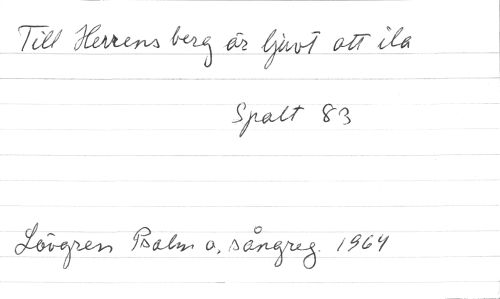 Till Herrens berg är ljuvt att ila
Spalt 83
Lövgren Psalm o. sångreg. 1964